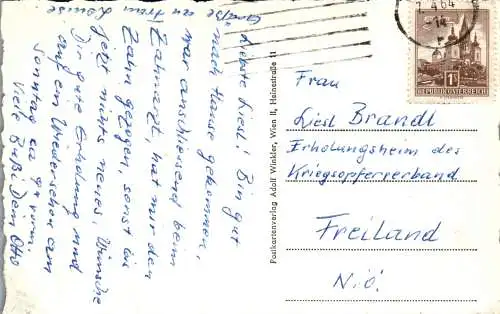 Liebste Liesl! Bin gut
nach Hause gekommen,
war anschliessend beim
Zahnarzt, hat mir den
Zahn gezogen, sonst bin
jetzt nichts neues, Wünsche
Dir gute Erholung und
auf ein Wiedersehen am
Sonntag
Viele Bußi Dein Otto
Grüße an Frau Louise
Postkartenverlag Adolf Winkler, Wien II, Heinestraße 11
7. 4. 64
-14
1S
REPUBLIK ÖSTERREICH
Frau
Liesl Brandl
Erholungsheim des
Kriegsopferverband
Freiland
N.Ö.